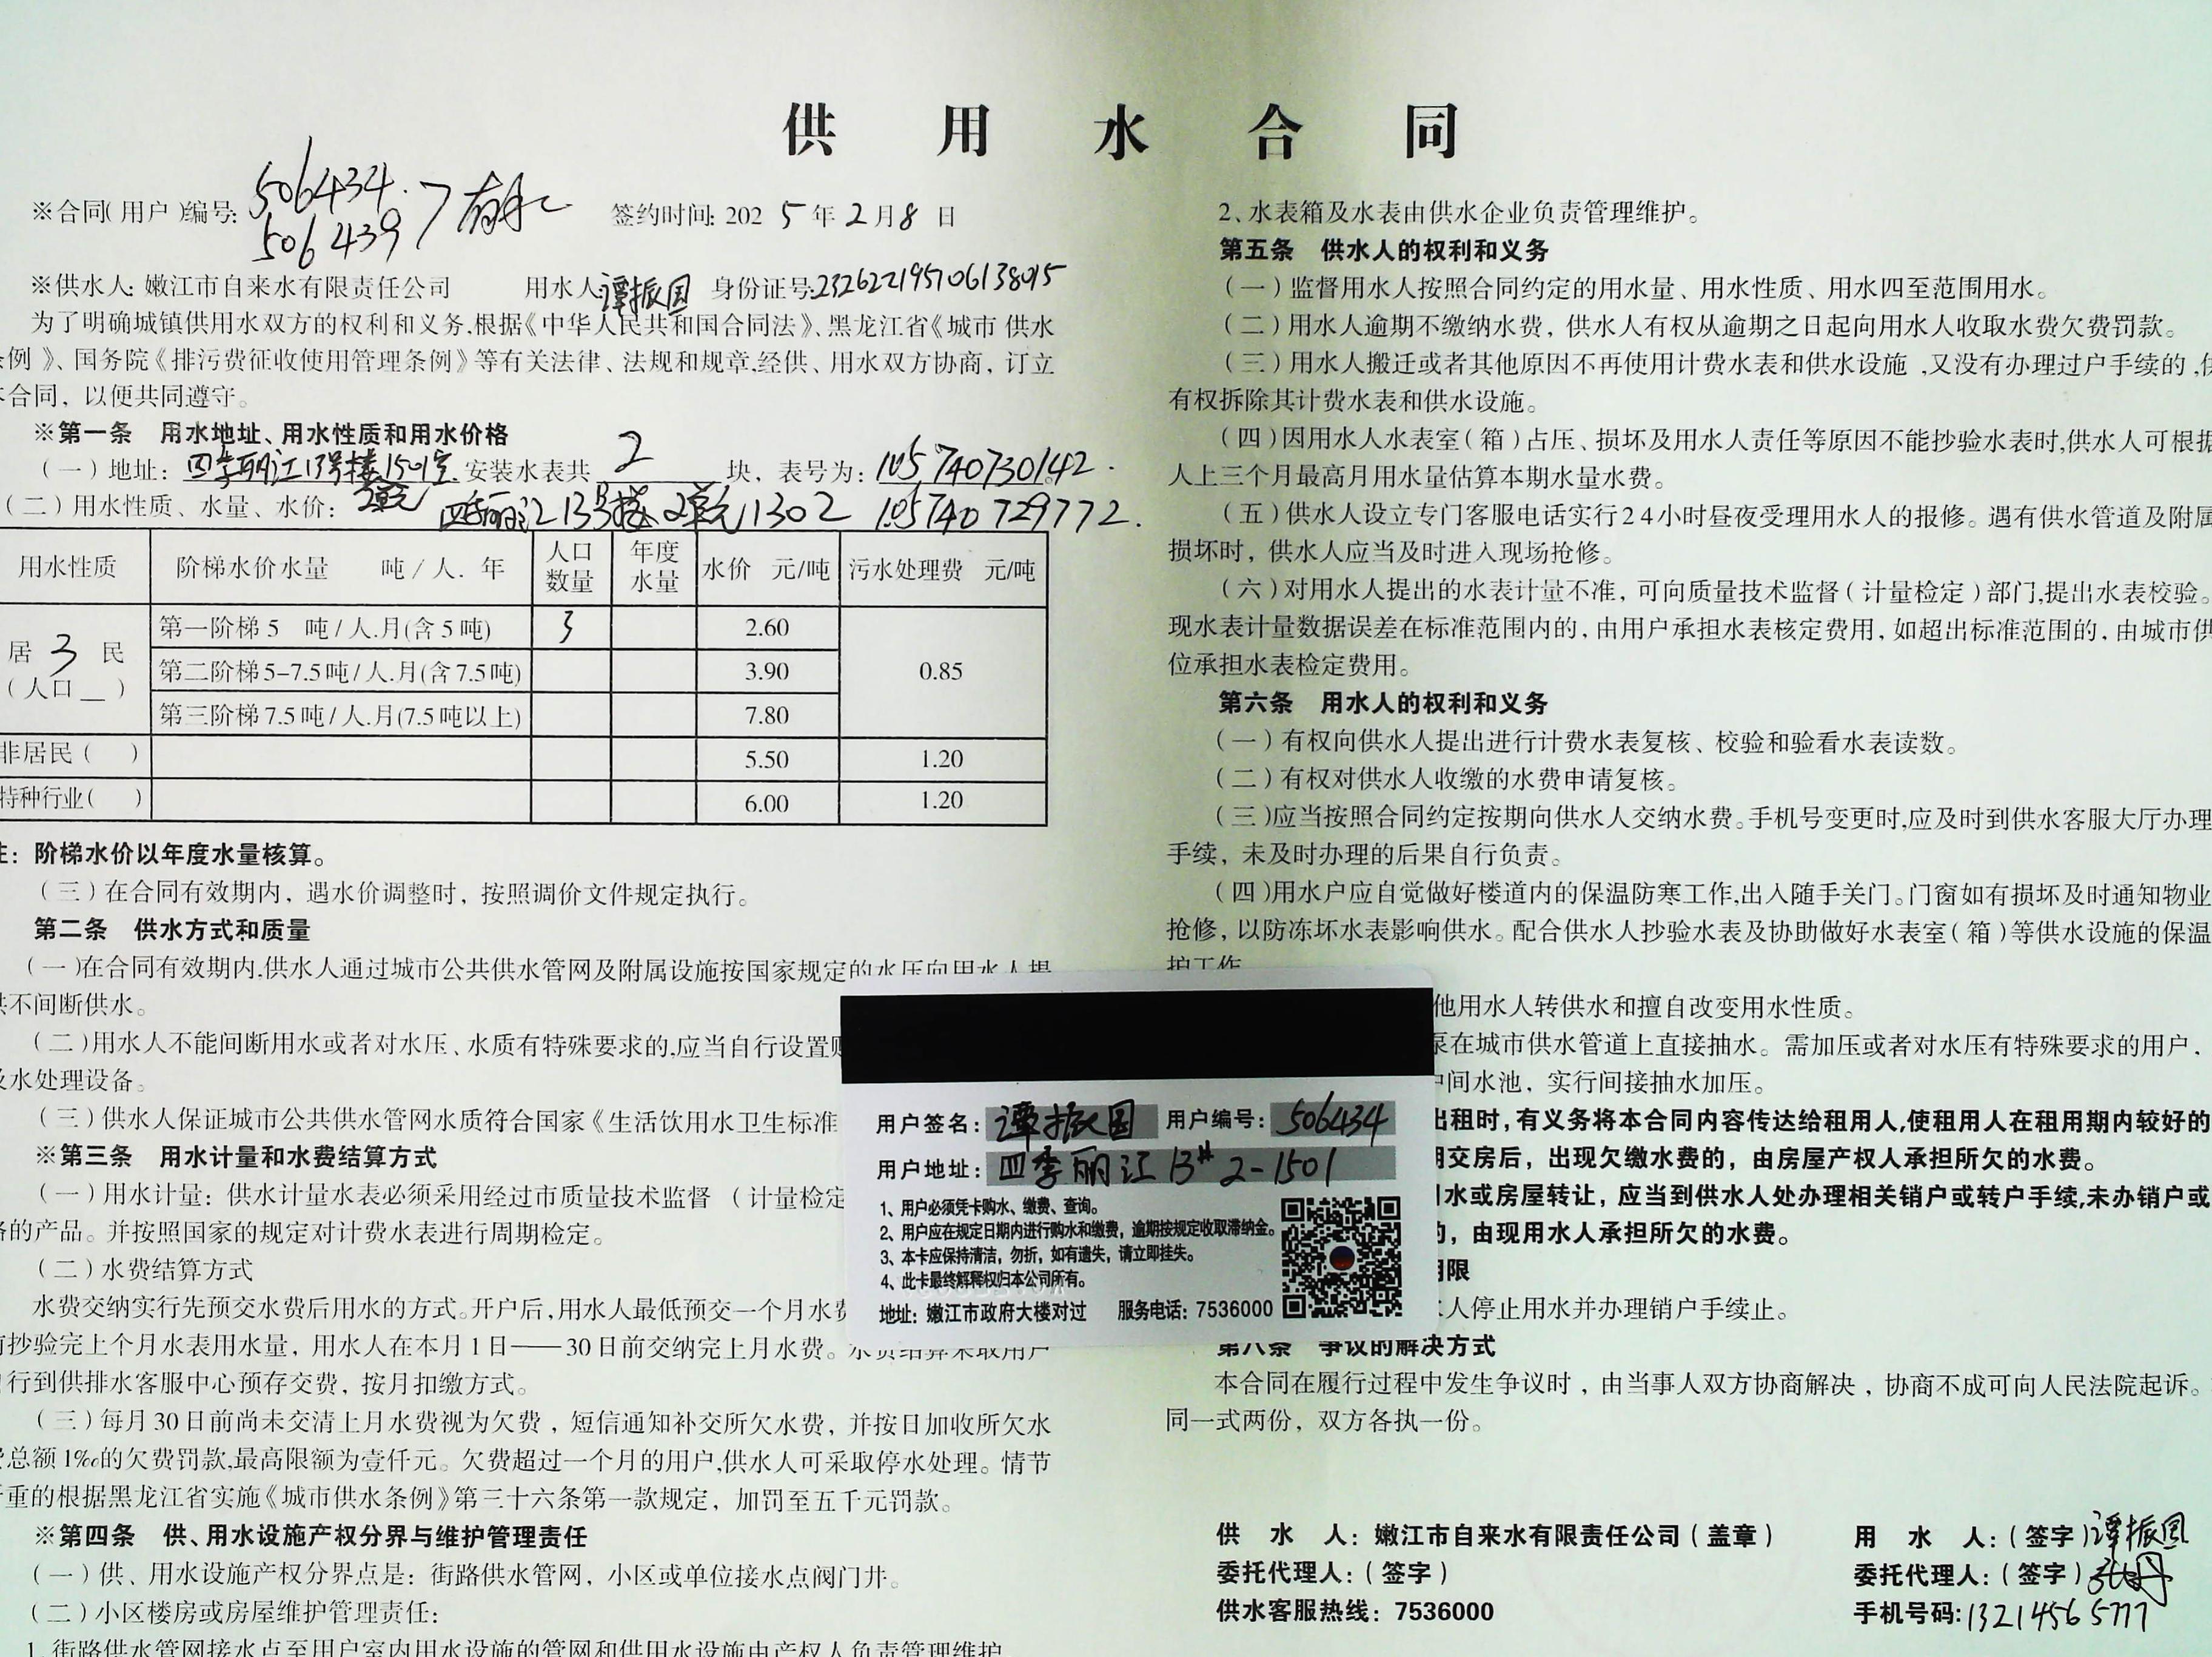 供用水合同
※合同(用户)编号: 506434.
506439
签约时间: 2025年2月8日
※供水人: 嫩江市自来水有限责任公司 用水人: 谭振国 身份证号: 232622195706138015
为了明确城镇供用水双方的权利和义务,根据《中华人民共和国合同法》、黑龙江省《城市供水
条例》、国务院《排污费征收使用管理条例》等有关法律、法规和规章,经供、用水双方协商，订立
本合同，以便共同遵守。
※第一条 用水地址、用水性质和用水价格
(一)地址: 四季丽江13号楼1501室. 安装水表共 2 块，表号为: 105740730142.
2单元
(二)用水性质、水量、水价: 四季丽江13号楼2单元1302 105740729772.
用水性质 阶梯水价水量 吨/人.年 人口数量 年度水量 水价 元/吨 污水处理费 元/吨
居 3 民(人口__) 第一阶梯 5 吨/人.月(含5吨) 3 2.60 0.85
第二阶梯 5-7.5吨/人.月(含7.5吨) 3.90
第三阶梯 7.5吨/人.月(7.5吨以上) 7.80
非居民( ) 5.50 1.20
特种行业( ) 6.00 1.20
注：阶梯水价以年度水量核算。
(三)在合同有效期内，遇水价调整时，按照调价文件规定执行。
第二条 供水方式和质量
(一)在合同有效期内,供水人通过城市公共供水管网及附属设施按国家规定的水压向用水人提
供不间断供水。
(二)用水人不能间断用水或者对水压、水质有特殊要求的,应当自行设置
及水处理设备。
(三)供水人保证城市公共供水管网水质符合国家《生活饮用水卫生标准
※第三条 用水计量和水费结算方式
(一)用水计量：供水计量水表必须采用经过市质量技术监督 (计量检定
格的产品。并按照国家的规定对计费水表进行周期检定。
(二)水费结算方式
水费交纳实行先预交水费后用水的方式。开户后,用水人最低预交一个月水费
前抄验完上个月水表用水量，用水人在本月1日——30日前交纳完上月水费。水费结算采取用户
自行到供排水客服中心预存交费，按月扣缴方式。
(三)每月30日前尚未交清上月水费视为欠费，短信通知补交所欠水费，并按日加收所欠水
费总额1‰的欠费罚款,最高限额为壹仟元。欠费超过一个月的用户,供水人可采取停水处理。情节
严重的根据黑龙江省实施《城市供水条例》第三十六条第一款规定，加罚至五千元罚款。
※第四条 供、用水设施产权分界与维护管理责任
(一)供、用水设施产权分界点是：街路供水管网，小区或单位接水点阀门井。
(二)小区楼房或房屋维护管理责任:
1、街路供水管网接水点至用户室内用水设施的管网和供用水设施由产权人负责管理维护
2、水表箱及水表由供水企业负责管理维护。
第五条 供水人的权利和义务
(一)监督用水人按照合同约定的用水量、用水性质、用水四至范围用水。
(二)用水人逾期不缴纳水费，供水人有权从逾期之日起向用水人收取水费欠费罚款。
(三)用水人搬迁或者其他原因不再使用计费水表和供水设施,又没有办理过户手续的,供
有权拆除其计费水表和供水设施。
(四)因用水人水表室(箱)占压、损坏及用水人责任等原因不能抄验水表时,供水人可根据
人上三个月最高月用水量估算本期水量水费。
(五)供水人设立专门客服电话实行24小时昼夜受理用水人的报修。遇有供水管道及附属
损坏时，供水人应当及时进入现场抢修。
(六)对用水人提出的水表计量不准，可向质量技术监督(计量检定)部门,提出水表校验。
现水表计量数据误差在标准范围内的，由用户承担水表核定费用，如超出标准范围的，由城市供
位承担水表检定费用。
第六条 用水人的权利和义务
(一)有权向供水人提出进行计费水表复核、校验和验看水表读数。
(二)有权对供水人收缴的水费申请复核。
(三)应当按照合同约定按期向供水人交纳水费。手机号变更时,应及时到供水客服大厅办理
手续，未及时办理的后果自行负责。
(四)用水户应自觉做好楼道内的保温防寒工作,出入随手关门。门窗如有损坏及时通知物业
抢修，以防冻坏水表影响供水。配合供水人抄验水表及协助做好水表室(箱)等供水设施的保温
护工作
他用水人转供水和擅自改变用水性质。
泵在城市供水管道上直接抽水。需加压或者对水压有特殊要求的用户，
中间水池，实行间接抽水加压。
出租时,有义务将本合同内容传达给租用人,使租用人在租用期内较好的
期交房后，出现欠缴水费的，由房屋产权人承担所欠的水费。
水或房屋转让，应当到供水人处办理相关销户或转户手续,未办销户或
的，由现用水人承担所欠的水费。
期限
人停止用水并办理销户手续止。
第八条 争议的解决方式
本合同在履行过程中发生争议时，由当事人双方协商解决，协商不成可向人民法院起诉。
同一式两份，双方各执一份。
供 水 人：嫩江市自来水有限责任公司(盖章)
委托代理人：(签字)
供水客服热线：7536000
用 水 人：(签字) 谭振国
委托代理人：(签字)
手机号码: 13214565777
用户签名: 谭振国 用户编号: 506434
用户地址: 四季丽江13# 2-1501
1、用户必须凭卡购水、缴费、查询。
2、用户应在规定日期内进行购水和缴费，逾期按规定收取滞纳金。
3、本卡应保持清洁，勿折，如有遗失，请立即挂失。
4、此卡最终解释权归本公司所有。
地址: 嫩江市政府大楼对过 服务电话: 7536000